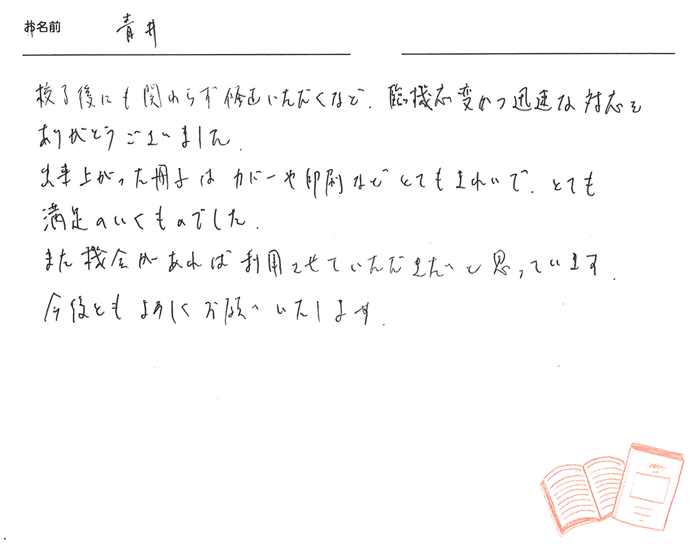 お名前 青井
校了後にも関わらず修正いただくなど、臨機応変かつ迅速な対応を
ありがとうございました。
出来上がった冊子はカバーや印刷などとてもきれいで、とても
満足のいくものでした。
また機会があれば利用させていただきたいと思っています。
今後ともよろしくお願いいたします。